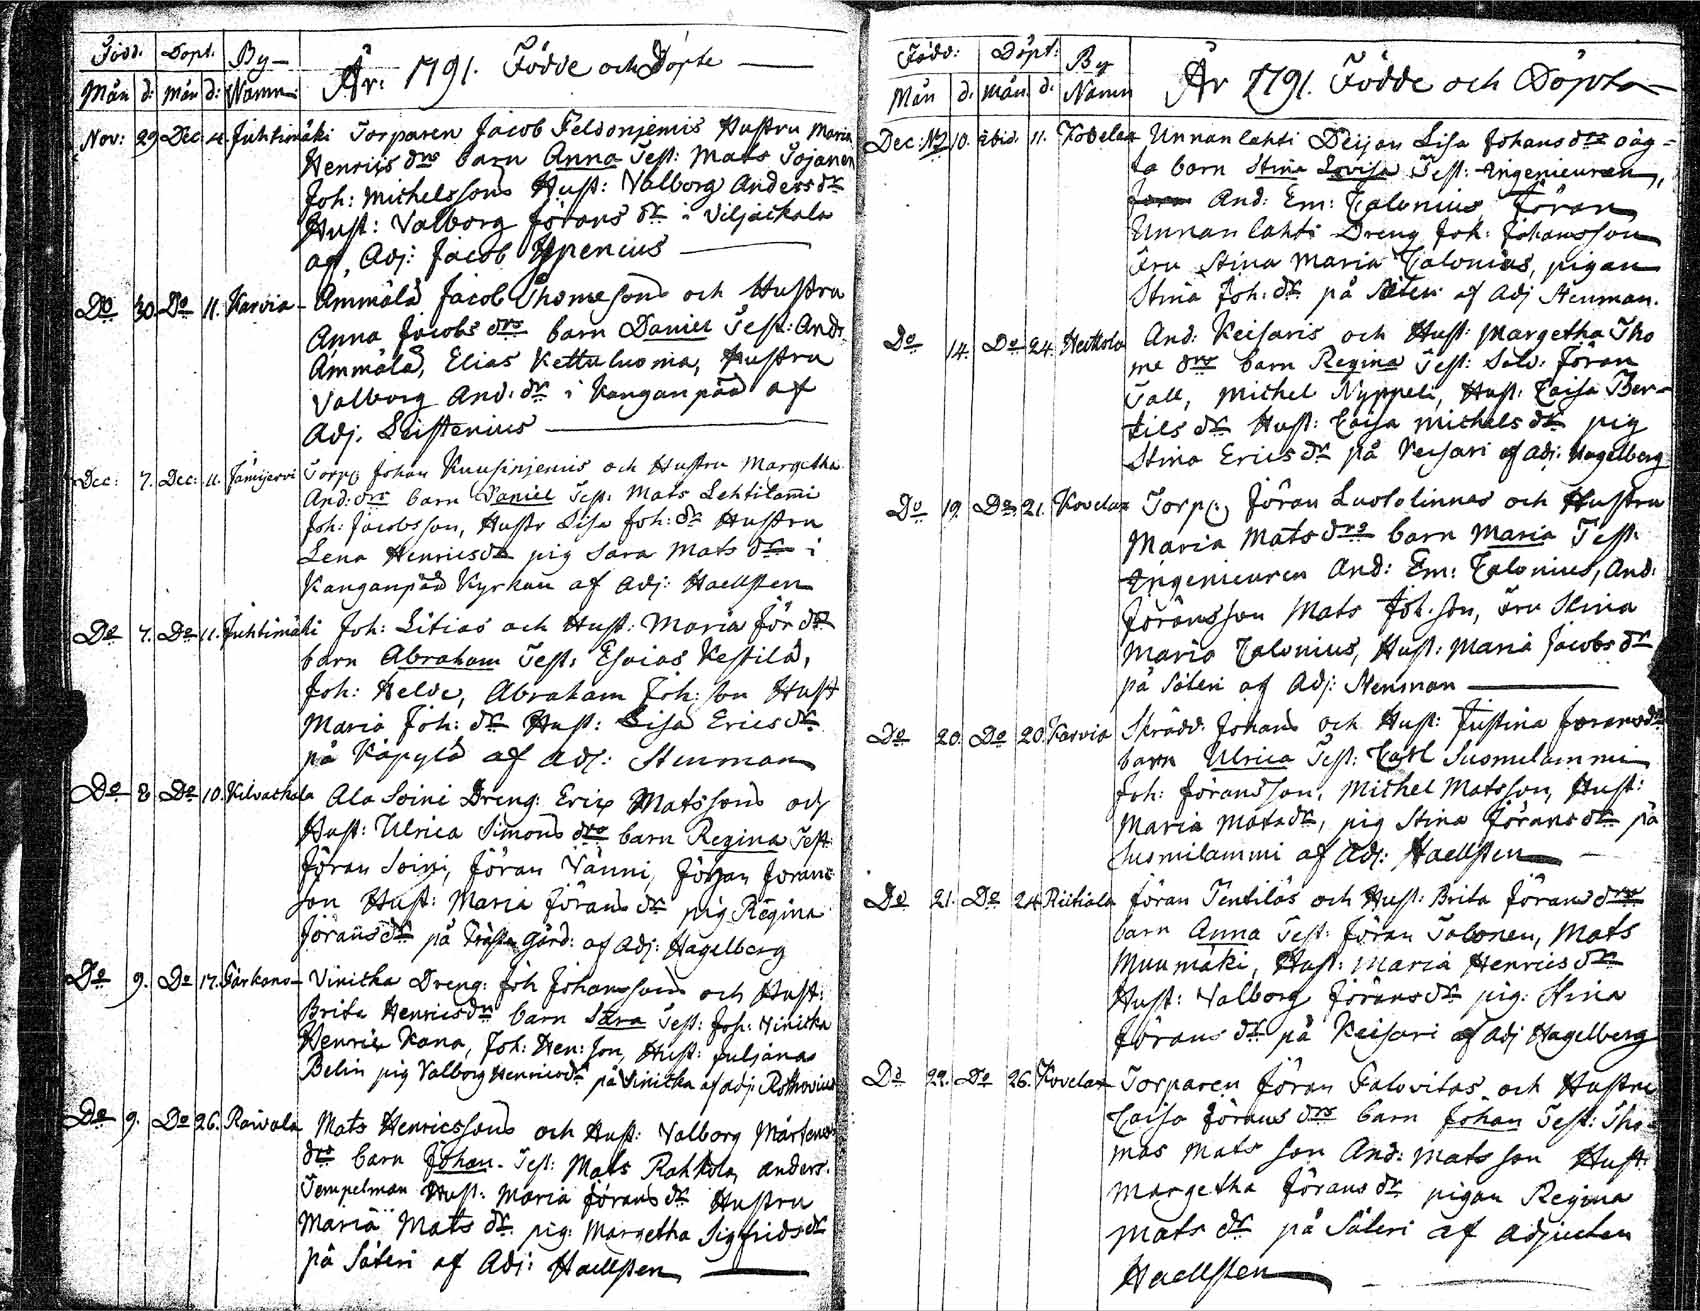 Född. Döpt. By-
Mån d: mån d: Nämn:
År: 1791. Födde och Döpte
Nov: 29 Dec: 4. Juhtimäki Torparen Jacob Feldonjemis Hustru Maria
Henrics drs barn Anna Test: Mats Tojanen
Joh: Michelssons Hust: Valborg Anders dr
Hust: Valborg Jörans dr i Viljackala
af, Adj: Jacob Ypenius
Do 30. Do 11. Karvia Ämmälä Jacob Thomesons och Hustru
Anna Jacobs drs barn Daniel Test: And:
Ämmälä, Elias Kettuluoma, Hustru
Valborg And: dr i Kanganpää af
Adj. Leistenius
Dec: 7. Dec: 11. Jämijervi Torp: Johan Kuusinjemis och Hustru Margetha
And: drs barn Daniel Test: Mats Lehtilami
Joh: Jacobsson, Hustr Lisa Joh: dr Hustru
Lena Henricsdr pig Sara Mats dr i
Kanganpää Kyrkan af Adj: Haellsten
Do 7. Do 11. Juhtimäki Joh: Litias och Hust: Maria Jör dr
barn Abraham Test: Esaias Kestilä,
Joh: Helde, Abraham Joh: Son Hust
Maria Joh: dr Hust: Lisa Erics dr
på Käpylä af Adj: Stenman
Do 8. Do 10. Kilvackala Ala Soini Dreng: Eric Matssons och
Hust: Ulrica Simons drs barn Regina Test:
Jöran Soini, Jöran Vänni, Jöran Jörans-
son Hust: Maria Jörans dr pig Regina
Jörans dr på Prästa Gård: af Adj: Hagelberg
Do 9. Do 17. Parkano Vinicka Dreng: Joh Johanssons och Hust:
Brita Henricsdr barn Sara Test: Joh: Vinicka
Henric Kana, Joh: Hen: son, Hust: Juljana
Belin pig Valborg Henricsdr på Vinicka af adj: Rothovius
Do 9. Do 26. Raivala Mats Henricssons och Hust: Valborg Mårtens
drs barn Johan. Test: Mats Rahkola, Anders.
Tempelman Hust: Maria Jörans dr Hustru
Maria Mats dr pig: Margetha Sigfrids dr
på Säteri af Adj: Haellsten
Född: Döpt: By
Mån d. Mån d. Nämn
År 1791. Födde och Döpta
Dec: 10. ibid. 11. Kovelax Unnanlahti Deijan Lisa Johans drs oäg-
ta barn Stina Lovisa Test: Ingenieuren,
And: Em: Calonius Jöran
Unnanlahti Dreng Joh: Johansson
Fru Stina Maria Calonius, pigan
Stina Joh: dr på Säteri af Adj Stenman.
Do 14. Do 24. Heittola And: Keisaris och Hust: Margetha Tho
me drs barn Regina Test: Sold: Jöran
Tall, Michel Nyppeli, Hust: Caisa Ber-
tils dr Hust: Caisa Michels dr pig
Stina Erics dr på Keisari af Adj: Hagelberg
Do 19. Do 21. Kovelax Torp: Jöran Luotolinnas och Hustru
Maria Mats drs barn Maria Test:
Ingenieuren And: Em: Calonius, And:
Jöransson Mats Joh. son, Fru Stina
Maria Calonius, Hust: Maria Jacobs dr
på Säteri af Adj: Stenman
Do 20. Do 20. Karvia Skrädd. Johans och Hust: Justina Jörans dr
barn Ulrica Test: Carl Suomilammi
Joh: Jöransson, Michel Matsson, Hust:
Maria Mats dr, pig Stina Jörans dr på
Suomilammi af Adj: Haellsten
Do 21. Do 24 Riitiala Jöran Tentiläs och Hust: Brita Jörans drs
barn Anna Test: Jöran Talonen, Mats
Muumäki, Hust: Maria Henrics dr
Hust: Valborg Jörans dr pig: Stina
Jörans dr på Keisari af Adj Hagelberg
Do 22. Do 26. Kovelax Torparen Jöran Palovitas och Hustru
Caisa Jörans drs barn Johan Test: Tho-
mas Mats son And: Mats son Hust:
Margetha Jörans dr pigan Regina
Mats dr på Säteri af Adjucten
Haellsten